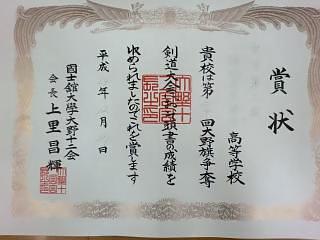 賞状
高等学校
貴校は第 回大野旗争奪
剣道大会において頭書の成績を
收められましたのでこれを賞します
平成 年 月 日
國士舘大學大野十二会
会長 上里昌輝